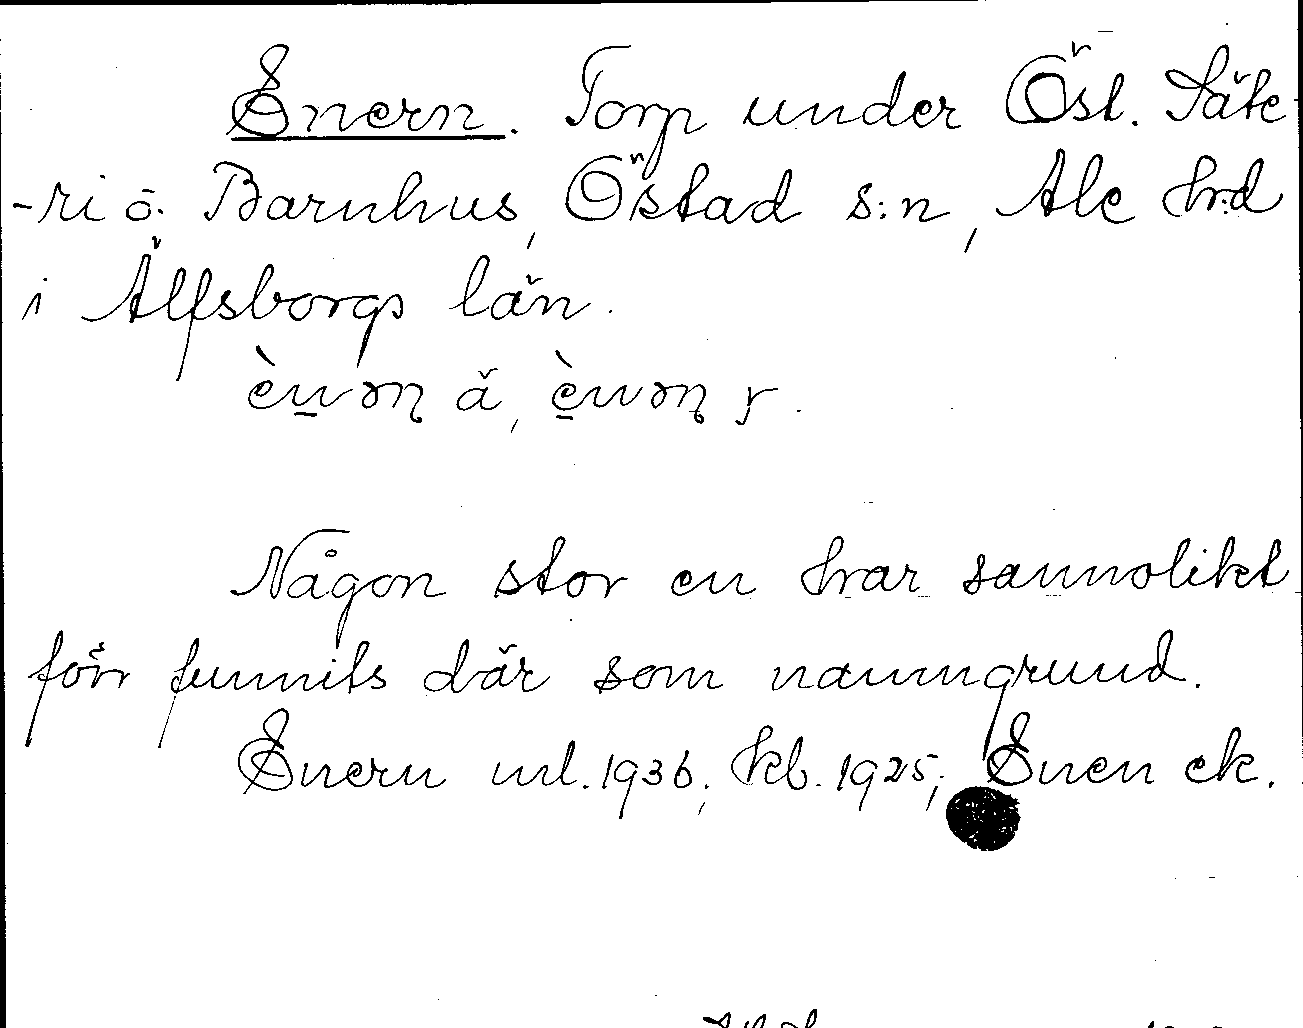 Enern. Torp under Öst. Säte-
-ri o. Barnhus, Östad s:n, Ale hrd
i Älfsborgs län.
Någon stor en har sannolikt
förr funnits där som namngrund.
Enern ml. 1936, kb. 1925; Enen ek.